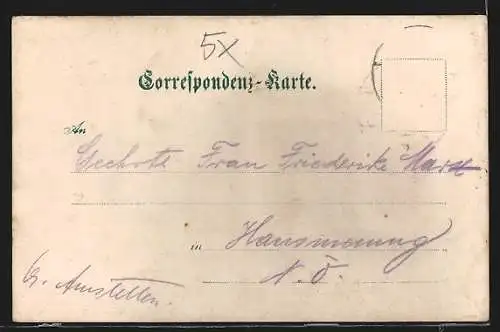 5x
Correspondenz-Karte.
An
Geehrte Frau Friederike Marx
in Hausmening
N. Ö.
b. Amstetten.